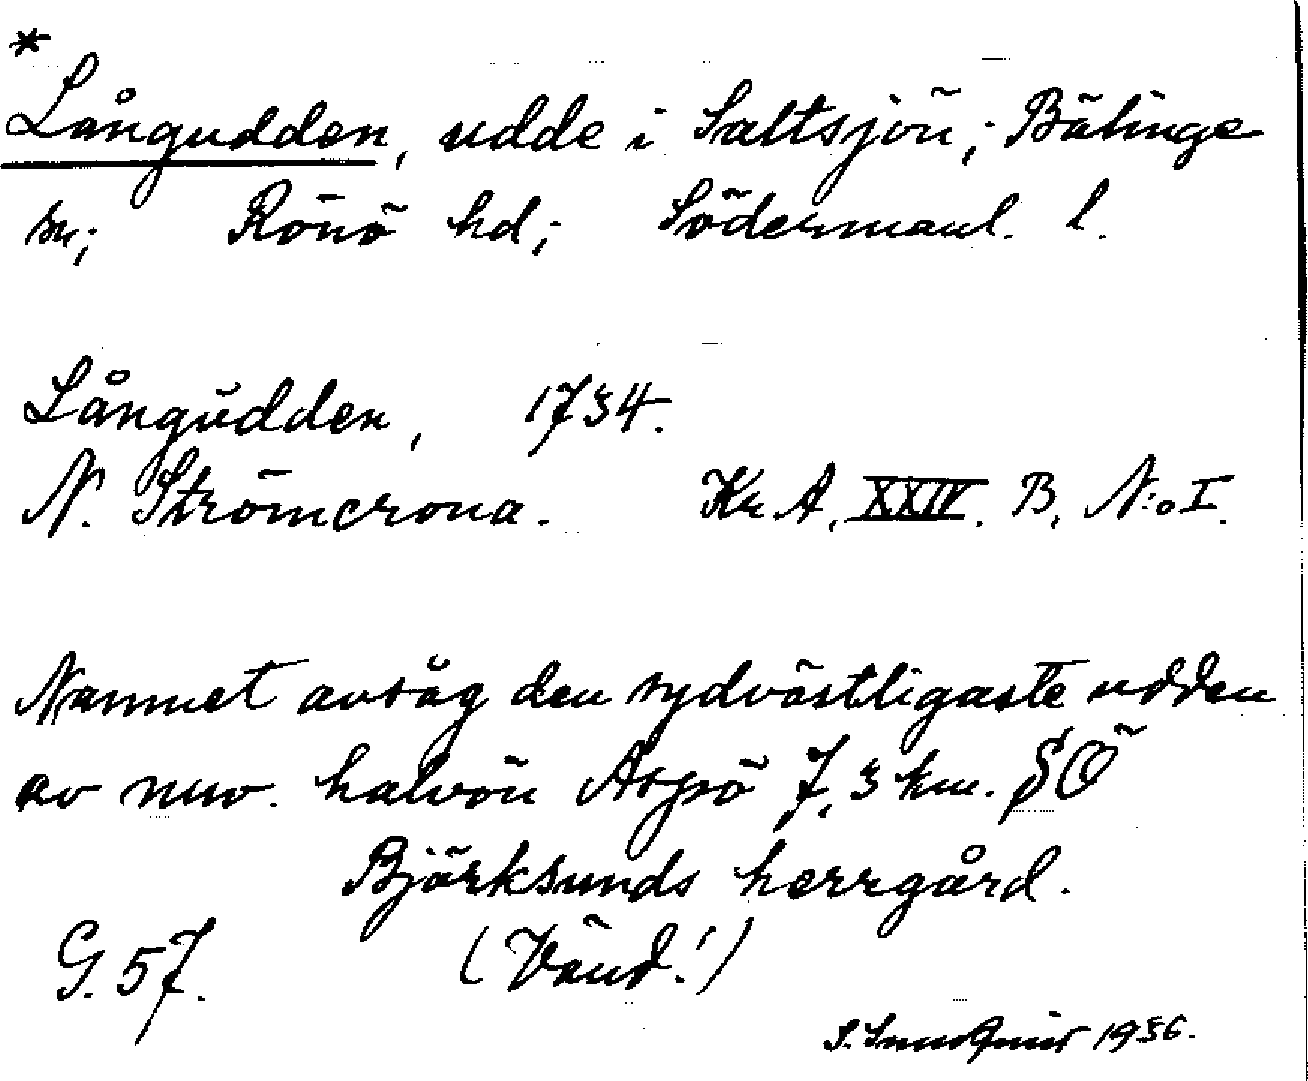 *
Långudden, udde i Saltsjön; Bälinge
sn; Rönö hd; Södermanl. l.
Långŭdden, 1734.
N. Strömcrona. Kr. A. XXIV. B. N:o I.
Namnet avsåg den sydvästligaste udden
av nuv. halvön Aspö 7,3 km. SÖ
Björksunds herrgård.
G. 57. (Vänd!)
S. 1936.